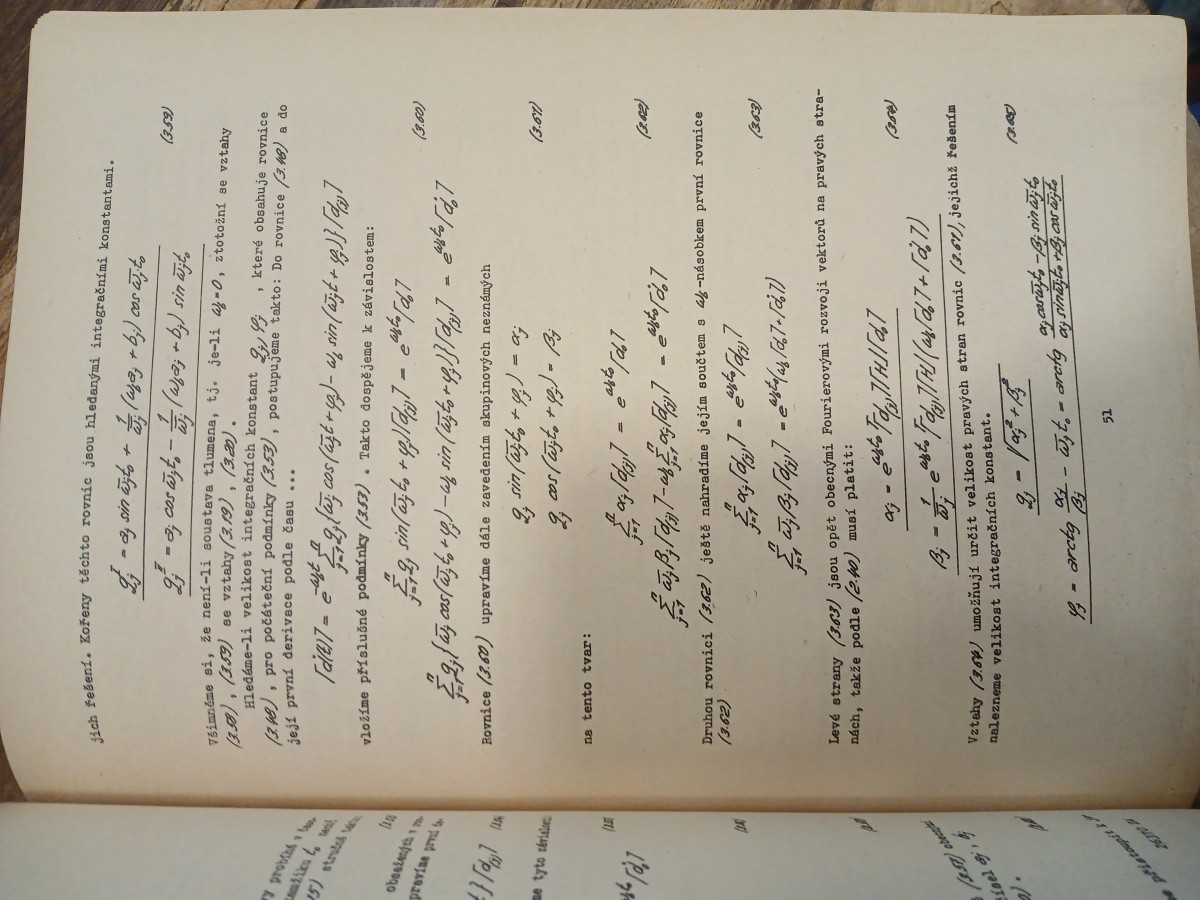 jich řešení. Kořeny těchto rovnic jsou hledanými integračními konstantami.
Q_j^I = a_j sin ω̄_j t_o + 1/ω̄_j (ω_b a_j + b_j) cos ω̄_j t_o
Q_j^II = a_j cos ω̄_j t_o - 1/ω̄_j (ω_b a_j + b_j) sin ω̄_j t_o (3.59)
Všimněme si, že není-li soustava tlumena, tj. je-li ω_b = 0, ztotožní se vztahy
(3.58), (3.59) se vztahy (3.19), (3.20).
Hledáme-li velikost integračních konstant Q_j, φ_j, které obsahuje rovnice
(3.48), pro počáteční podmínky (3.53), postupujeme takto: Do rovnice (3.48) a do
její první derivace podle času ...
⌈ḋ(t)⌉ = e^{-ω_b t} Σ_{j=1}^n Q_j {ω̄_j cos(ω̄_j t + φ_j) - ω_b sin(ω̄_j t + φ_j)} ⌈d_(j)⌉
vložíme příslušné podmínky (3.53). Takto dospějeme k závislostem:
Σ_{j=1}^n Q_j sin(ω̄_j t_o + φ_j) ⌈d_(j)⌉ = e^{ω_b t_o} ⌈d_o⌉ (3.60)
Σ_{j=1}^n Q_j {ω̄_j cos(ω̄_j t_o + φ_j) - ω_b sin(ω̄_j t_o + φ_j)} ⌈d_(j)⌉ = e^{ω_b t_o} ⌈ḋ_o⌉
Rovnice (3.60) upravíme dále zavedením skupinových neznámých
Q_j sin(ω̄_j t_o + φ_j) = α_j
Q_j cos(ω̄_j t_o + φ_j) = β_j (3.61)
na tento tvar:
Σ_{j=1}^n α_j ⌈d_(j)⌉ = e^{ω_b t_o} ⌈d_o⌉
Σ_{j=1}^n ω̄_j β_j ⌈d_(j)⌉ - ω_b Σ_{j=1}^n α_j ⌈d_(j)⌉ = e^{ω_b t_o} ⌈ḋ_o⌉ (3.62)
Druhou rovnici (3.62) ještě nahradíme jejím součtem s ω_b-násobkem první rovnice
(3.62)
Σ_{j=1}^n α_j ⌈d_(j)⌉ = e^{ω_b t_o} ⌈d_o⌉
Σ_{j=1}^n ω̄_j β_j ⌈d_(j)⌉ = e^{ω_b t_o} (ω_b ⌈d_o⌉ + ⌈ḋ_o⌉) (3.63)
Levé strany (3.63) jsou opět obecnými Fourierovými rozvoji vektorů na pravých stra-
nách, takže podle (2.40) musí platit:
α_j = e^{ω_b t_o} ⌈d_(j)⌉ ⌈H⌉ ⌈d_o⌉
β_j = 1/ω̄_j e^{ω_b t_o} ⌈d_(j)⌉ ⌈H⌉ (ω_b ⌈d_o⌉ + ⌈ḋ_o⌉) (3.64)
Vztahy (3.64) umožňují určit velikost pravých stran rovnic (3.61), jejichž řešením
nalezneme velikost integračních konstant.
Q_j = √(α_j² + β_j²)
φ_j = arctg α_j/β_j - ω̄_j t_o = arctg (α_j cos ω̄_j t_o - β_j sin ω̄_j t_o)/(α_j sin ω̄_j t_o + β_j cos ω̄_j t_o) (3.65)
51